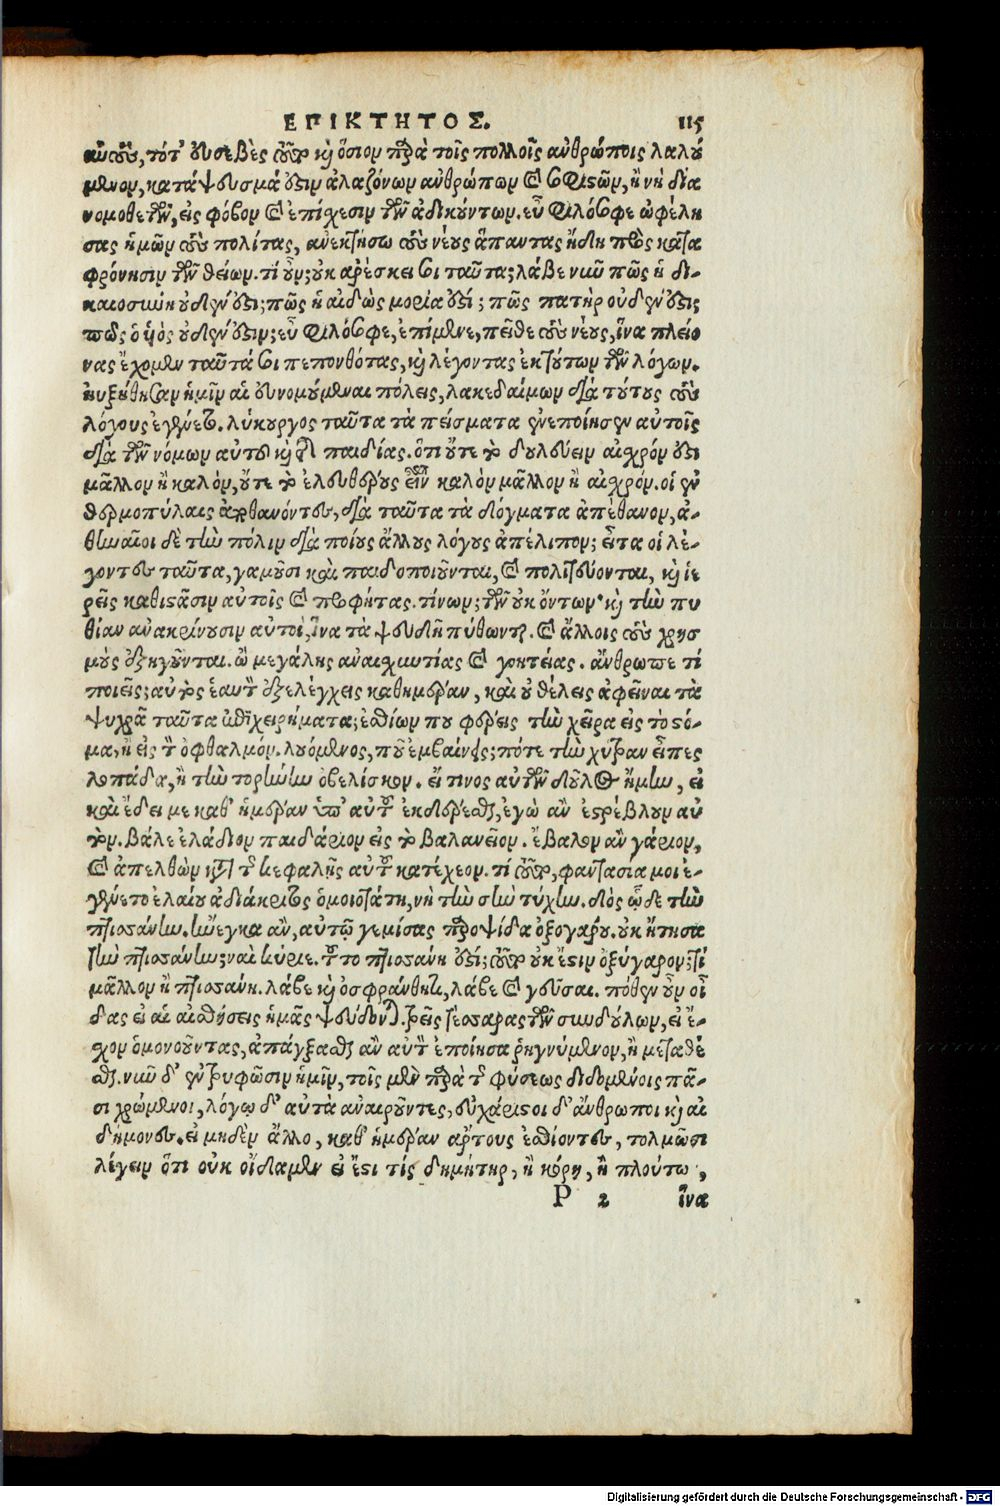 ΕΠΙΚΤΗΤΟΣ. 115
αυτους, τότ' ευσεβὲς τοῦτο κὶ ὅσιον παρὰ τοῖς πολλοῖς ανθρώποις λαλού
μενον, κατάψευσμά ἐστιν ἀλαζόνων ανθρώπων καὶ σοφιστῶν, ἢ νὴ δία
νομοθετῶν, εἰς φόβον καὶ ἐπίχεσιν τῶν ἀδικούντων. εὖ φιλόσοφε ὠφέλη
σας ἡμῶν τοὺς πολίτας, ανεκτήσω τοὺς νέους ἅπαντας ἤδη πρὸς κατα
φρόνησιν τῶν θείων. τί οὖν; οὐκ αρέσκει σοι ταῦτα; λάβε νῦν πῶς ἡ δι-
καιοσύνη οὐδέν ἐστι; πῶς ἡ αἰδὼς μορία ἐστί; πῶς πατὴρ οὐδέν ἐστι,
πῶς ὁ ἱὸς οὐδέν ἐστιν; εὖ φιλόσοφε, ἐπίμενε, πεῖθε τοὺς νέους, ἵνα πλείο
νας ἔχομεν ταῦτά σοι πεπονθότας, κὶ λέγοντας ἐκ τούτων τῶν λόγων.
ηὐξήθησαν ἡμῖν αἱ ευνομούμεναι πόλεις, λακεδαίμων διὰ τούτους τοὺς
λόγους ἐγένετο. λύκουργος ταῦτα τὰ πείσματα ἐνεποίησεν αὐτοῖς
διὰ τῶν νόμων αὐτοῦ κὶ τῆς παιδίας. ὅτι οὔτε τὸ δουλεύειν αἰχρόν ἐστι
μᾶλλον ἢ καλὸν, οὔτε τὸ ἐλευθέρους εἶναι καλὸν μᾶλλον ἢ αἰχρόν. οἱ ἐν
θερμοπύλαις ἀποθανόντες, διὰ ταῦτα τὰ δόγματα ἀπέθανον, ἀ-
θηναῖοι δὲ τὴν πόλιν διὰ ποίους ἄλλους λόγους ἀπέλιπον; εἶτα οἱ λέ-
γοντες ταῦτα, γαμοῦσι καὶ παιδοποιοῦνται, καὶ πολιτεύονται, κὶ ἱε
ρεῖς καθιστᾶσιν αὑτοῖς καὶ προφήτας. τίνων; τῶν οὐκ ὄντων· κὶ τὴν πυ
θίαν ανακρίνουσιν αὐτοὶ, ἵνα τὰ ψευδῆ πύθωνται. καὶ ἄλλοις τοὺς χρησ
μοὺς ἐξηγοῦνται. ὢ μεγάλης αναισχυντίας καὶ γοητείας. ἄνθρωπε τί
ποιεῖς; αὐτὸς ἑαυτὸν ἐξελέγχεις καθημέραν, καὶ οὐ θέλεις ἀφεῖναι τὰ
ψυχρὰ ταῦτα ἐπιχειρήματα; ἐσθίων που φέρεις τὴν χεῖρα εἰς τὸ στό-
μα, ἢ εἰς τὸν ὀφθαλμόν. λουόμενος, ποῦ ἐμβαίνεις; πότε τὴν χύτραν εἶπες
λοπάδα, ἢ τὴν τορύνην ὀβελίσκον. εἴ τινος αὐτῶν δοῦλος ἤμην, εἰ
καὶ ἔδει με καθ' ἡμέραν ὑπ' αὐτοῦ ἐκδέρεσθαι, ἐγὼ ἂν ἐστρέβλουν αὐ
τόν. βάλε ἐλάδιον παιδάριον εἰς τὸ βαλανεῖον. ἔβαλον ἂν γάριον,
καὶ ἀπελθὼν κατὰ τῆς κεφαλῆς αὐτοῦ κατέχεον. τί τοῦτο, φαντασία μοι ἐ-
γένετο ἐλαίου ἀδιάκριτος ὁμοιοτάτη, νὴ τὴν σὴν τύχην. δὸς ὧδε τὴν
πτισσάνην. ἤνεγκα ἂν, αὐτῷ γεμίσας παροψίδα ὀξογάρου. οὐκ ᾔτησα
τὴν πτισσάνην; ναὶ κύριε. τοῦτο πτισσάνη ἐστί; τοῦτο οὐκ ἔστιν ὀξύγαρον; τί
μᾶλλον ἢ πτισσάνη. λάβε κὶ ὀσφράνθητι, λάβε καὶ γεῦσαι. πόθεν οὖν οἶ
δας εἰ αἱ αἰσθήσεις ἡμᾶς ψεύδονται. τρεῖς τέσσαρας τῶν συνδούλων, εἰ ἔ-
χον ὁμονοοῦντας, ἀπάγξασθαι ἂν αὐτὸν ἐποίησα ῥηγνύμενον, ἢ μεταθέ
σθαι. νῦν δ' ἐντρυφῶσιν ἡμῖν, τοῖς μὲν παρὰ τῆς φύσεως διδομένοις πᾶ-
σι χρώμενοι, λόγῳ δ' αὐτὰ αναιροῦντες, εὐχάριστοι δ' ἄνθρωποι κὶ αἰ
δήμονες. εἰ μηδὲν ἄλλο, καθ' ἡμέραν ἄρτους ἐσθίοντες, τολμῶσι
λέγειν ὅτι οὐκ οἴδαμεν εἰ ἔστι τίς δημήτηρ, ἢ κόρη, ἢ πλούτω,
P 2 ἵνα
Digitalisierung gefördert durch die Deutsche Forschungsgemeinschaft - DFG